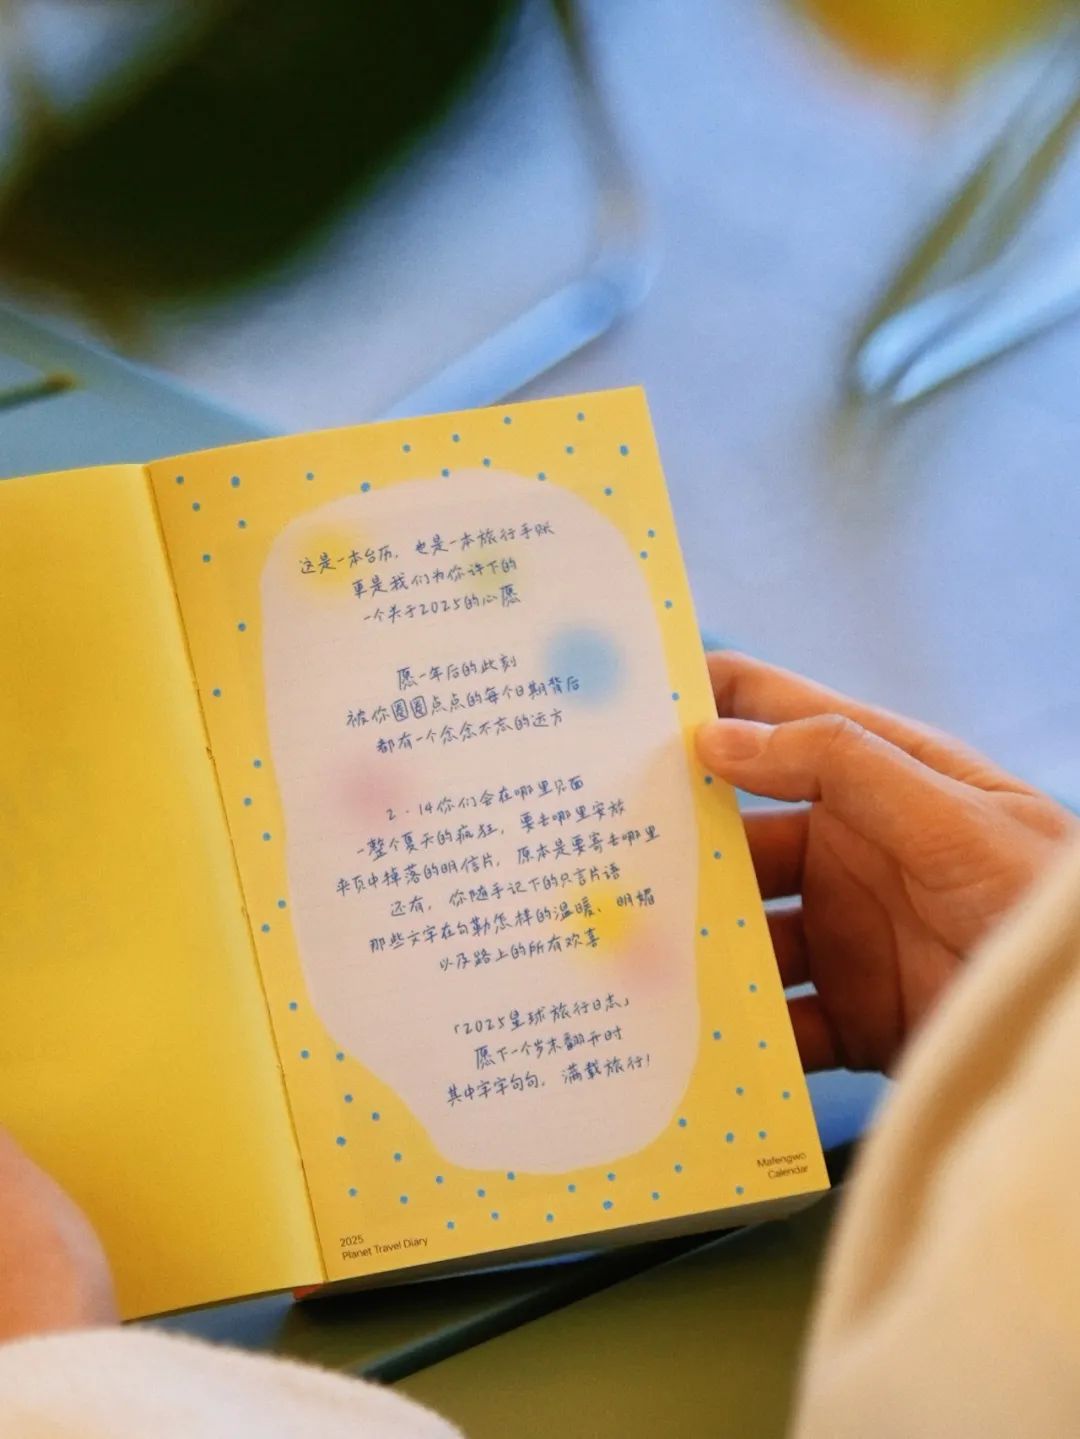 这是一本台历，也是一本旅行手账
更是我们为你许下的
一个关于2025的心愿
愿一年后的此刻
被你圈圈点点的每个日期背后
都有一个念念不忘的远方
2·14你们会在哪里见面
一整个夏天的疯狂，要去哪里安放
夹页中掉落的明信片，原本是要寄去哪里
还有，你随手记下的只言片语
那些文字在勾勒怎样的温暖、明媚
以及路上的所有欢喜
「2025星球旅行日志」
愿下一个岁末翻开时
其中字字句句，满载旅行！
Mafengwo
Calendar
2025
Planet Travel Diary